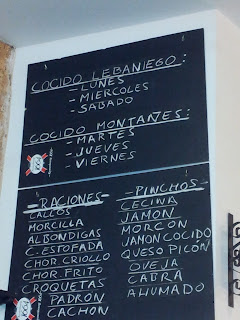 COCIDO LEBANIEGO:
- LUNES
- MIERCOLES
- SABADO
COCIDO MONTAÑES:
- MARTES
- JUEVES
- VIERNES
- RACIONES -
CALLOS
MORCILLA
ALBONDIGAS
C. ESTOFADA
CHOR. CRIOLLO
CHOR. FRITO
CROQUETAS
PADRON
CACHON
- PINCHOS -
CECINA
JAMON
MORCON
JAMON COCIDO
QUESO PICÓN
OVEJA
CABRA
AHUMADO